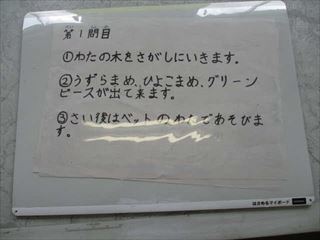 第1問目
①わたの木をさがしにいきます。
②うずらまめ、ひよこまめ、グリーン
ピースが出て来ます。
③さい後はペットのわたであそびま
す。